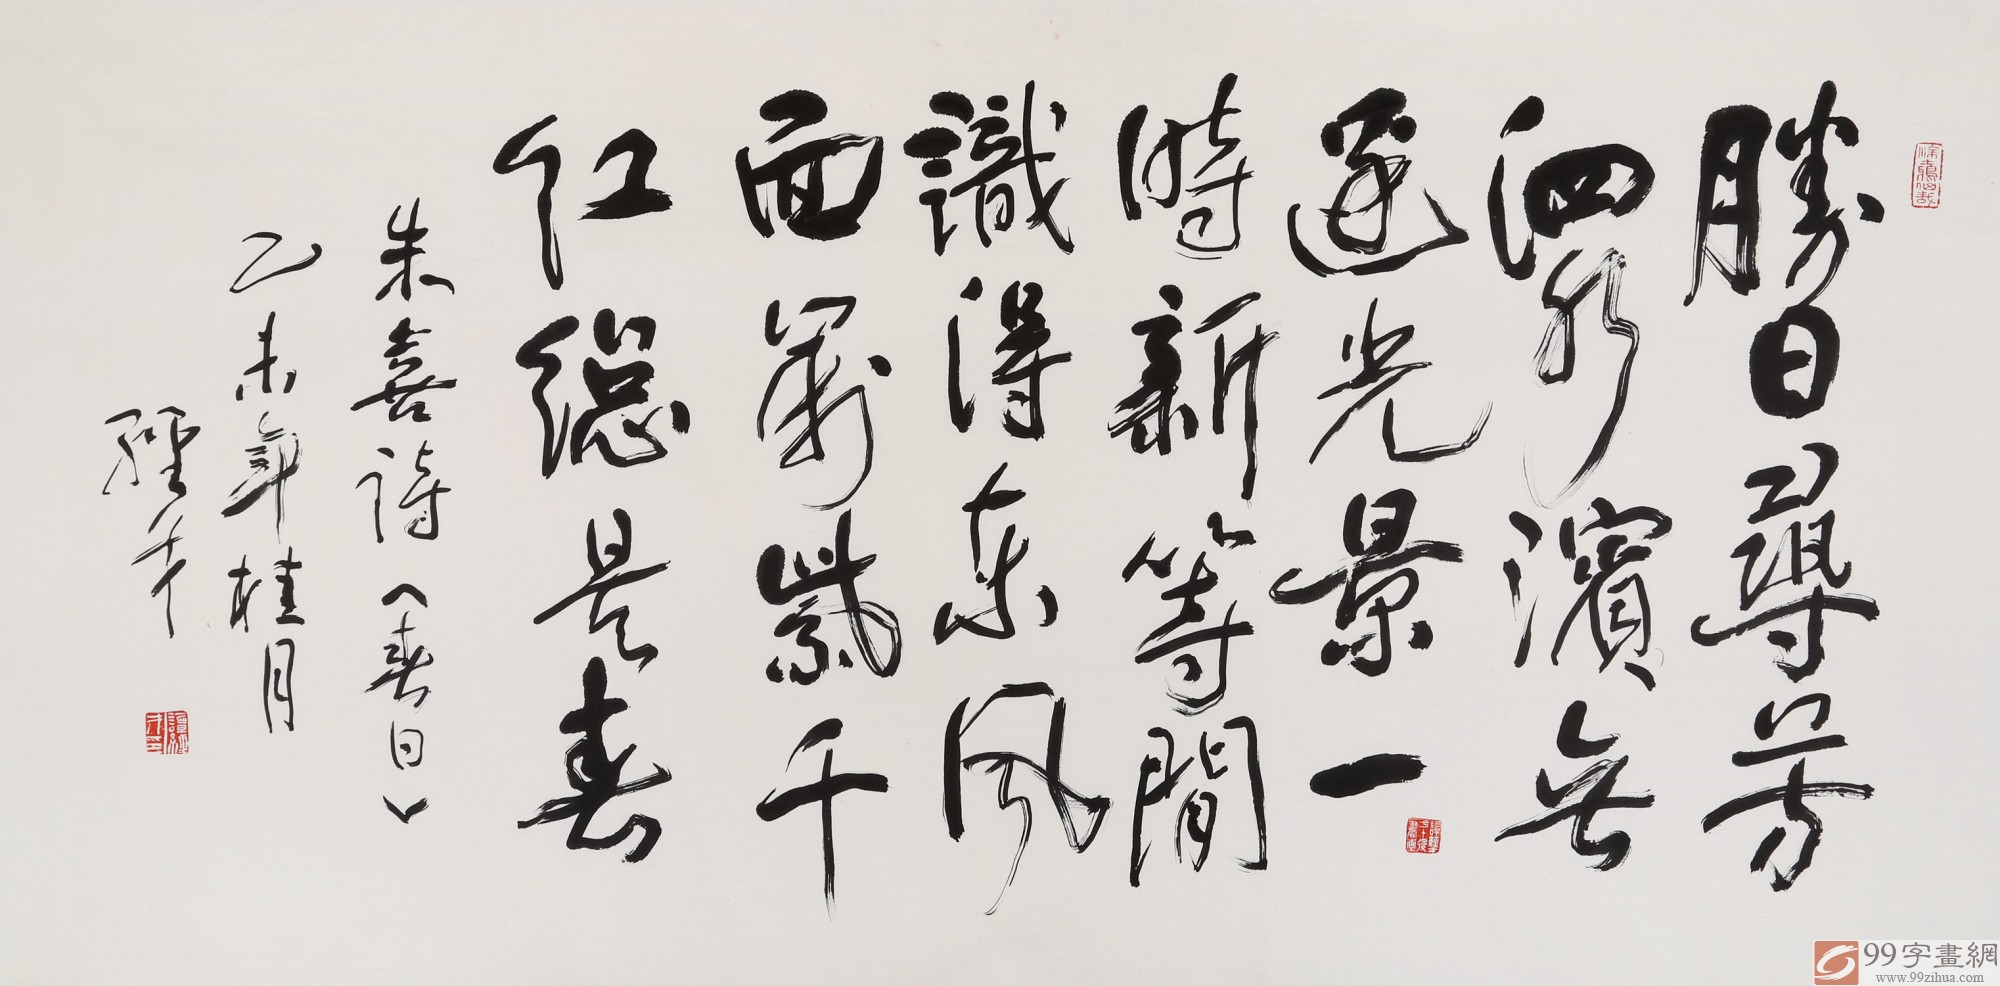 勝日尋芳
泗水濱無
邊光景一
時新等間
識得東風
面萬紫千
紅總是春
朱喜詩《春日》
乙未年桂月
經才
99字畫網
www.99zihua.com